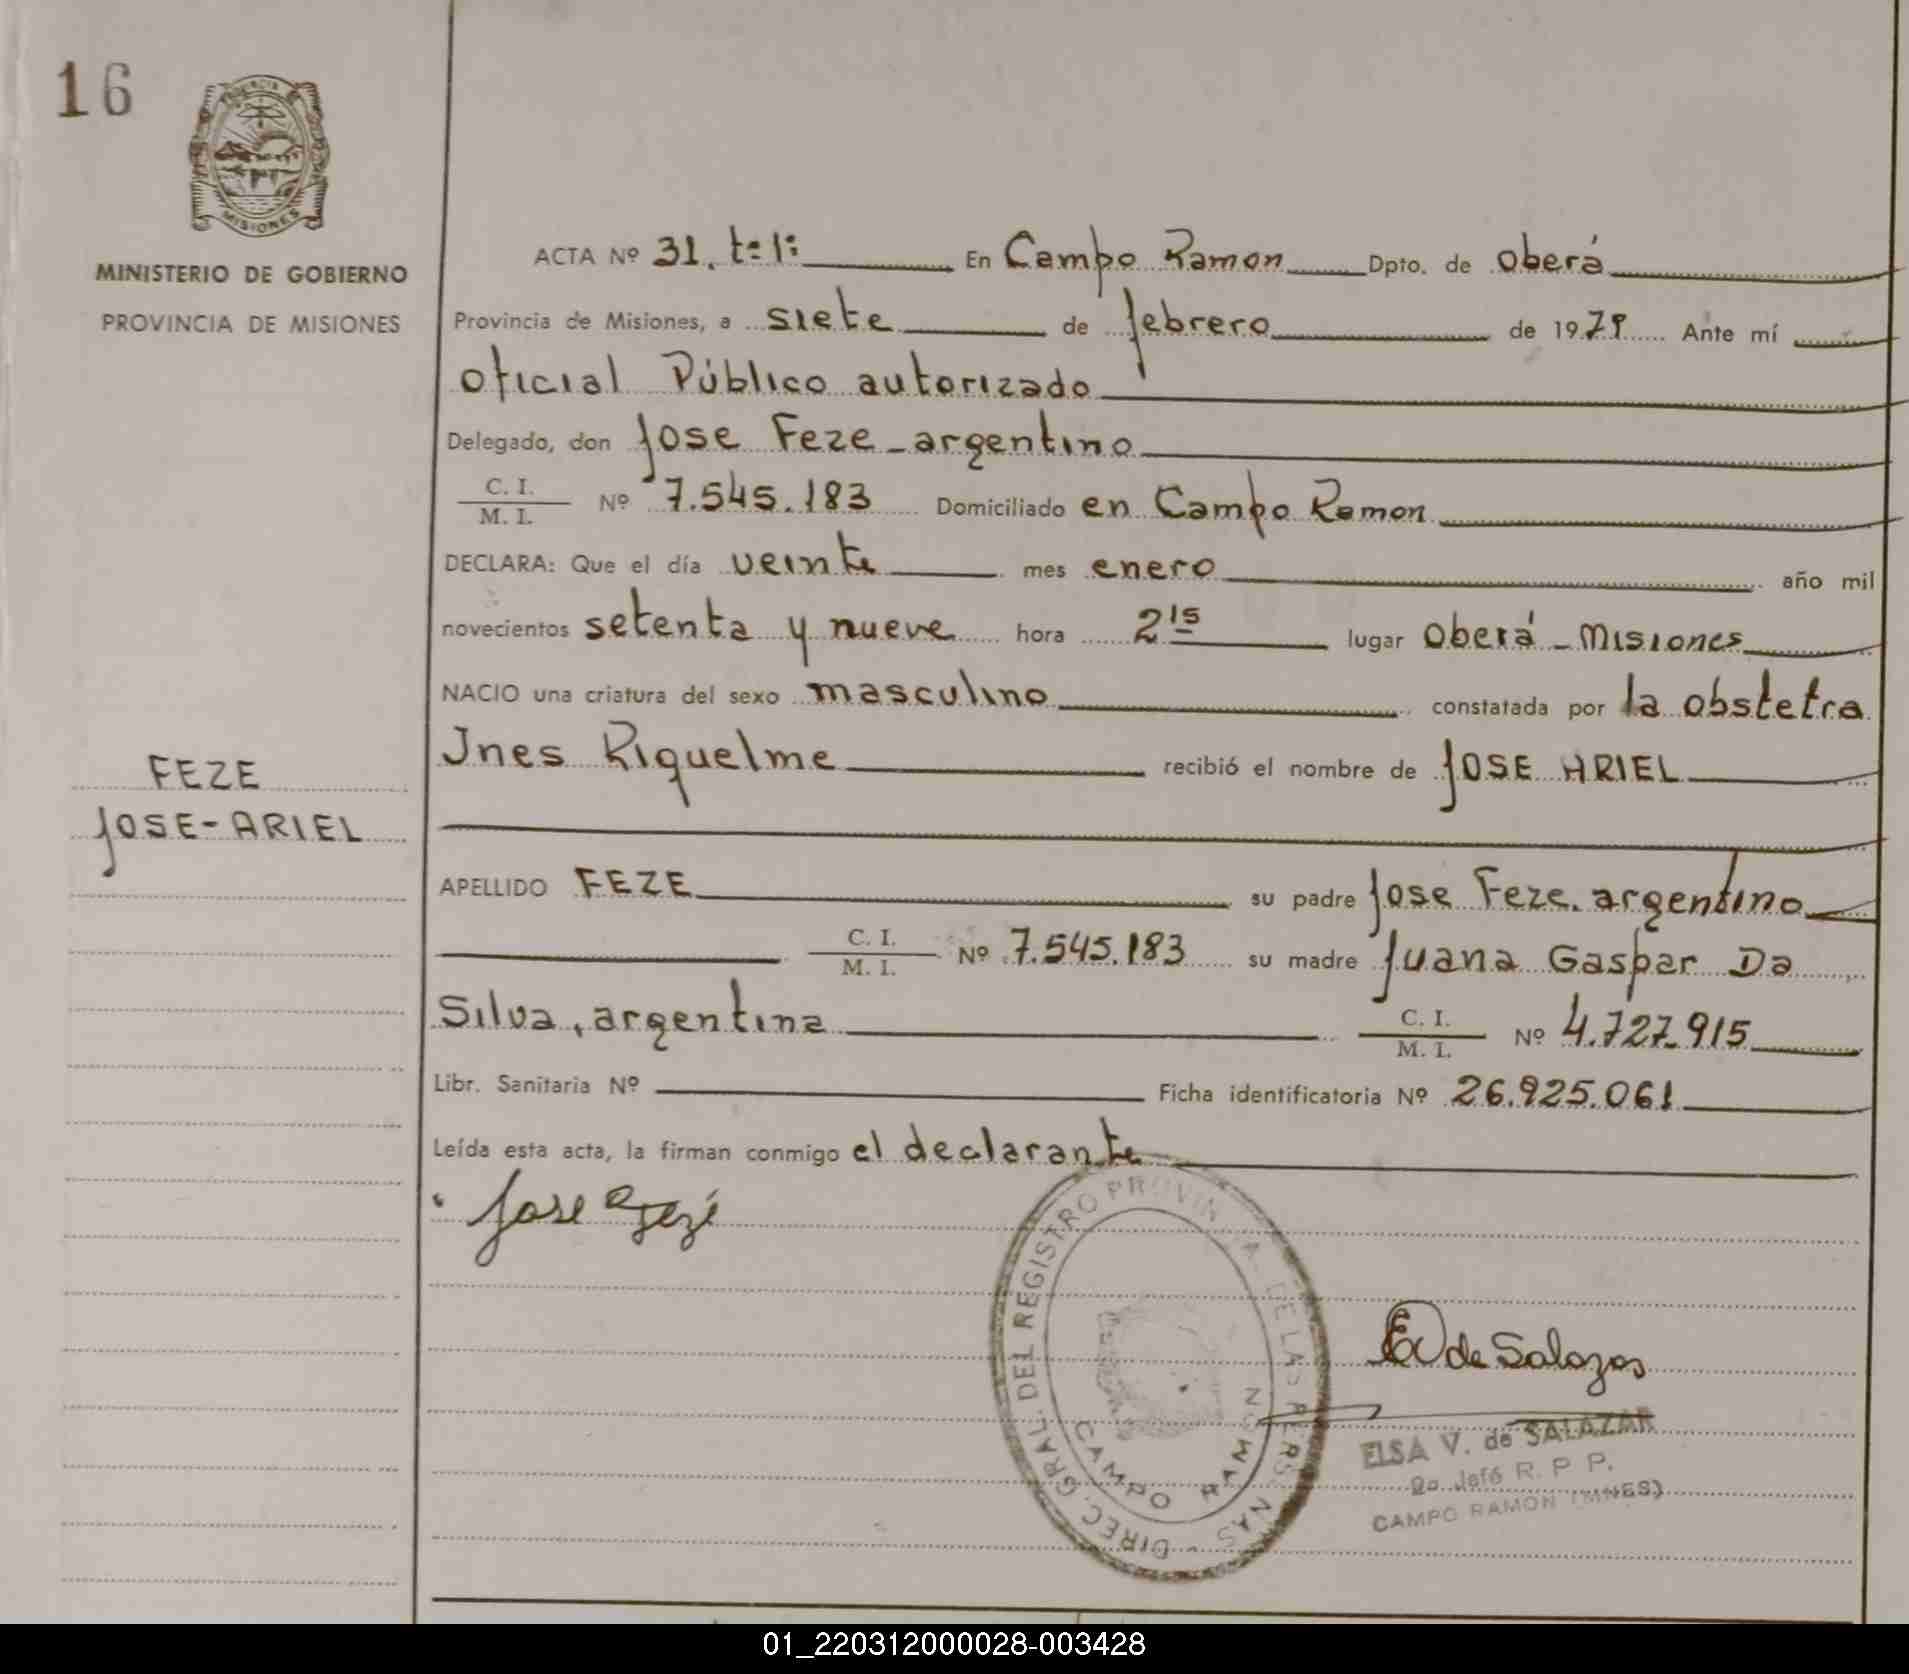 16
MISIONES
MINISTERIO DE GOBIERNO
PROVINCIA DE MISIONES
ACTA Nº 31. tº 1º En Campo Ramon Dpto. de Oberá
Provincia de Misiones, a siete de febrero de 1979 Ante mí
Oficial Público autorizado
Delegado, don Jose Feze - argentino
C. I. / M. I. Nº 7.545.183 Domiciliado en Campo Ramon
DECLARA: Que el día veinte mes enero año mil
novecientos setenta y nueve hora 2 15 lugar Oberá - Misiones
NACIO una criatura del sexo masculino constatada por la obstetra
Jnes Riquelme recibió el nombre de JOSE ARIEL
FEZE
JOSE-ARIEL
APELLIDO FEZE su padre Jose Feze. argentino
C. I. / M. I. Nº 7.545.183 su madre Juana Gaspar Da
Silva, argentina C. I. / M. I. Nº 4.727.915
Libr. Sanitaria Nº Ficha identificatoria Nº 26.925.061
Leída esta acta, la firman conmigo el declarante
Jose Fezé
DIREC. GRAL. DEL REGISTRO PROVIN DE LAS PERS NAS
CAMPO RAMON
E V de Salazar
ELSA V. de SALAZAR
Jefe R. P P.
CAMPO RAMON (MNES)
01_220312000028-003428